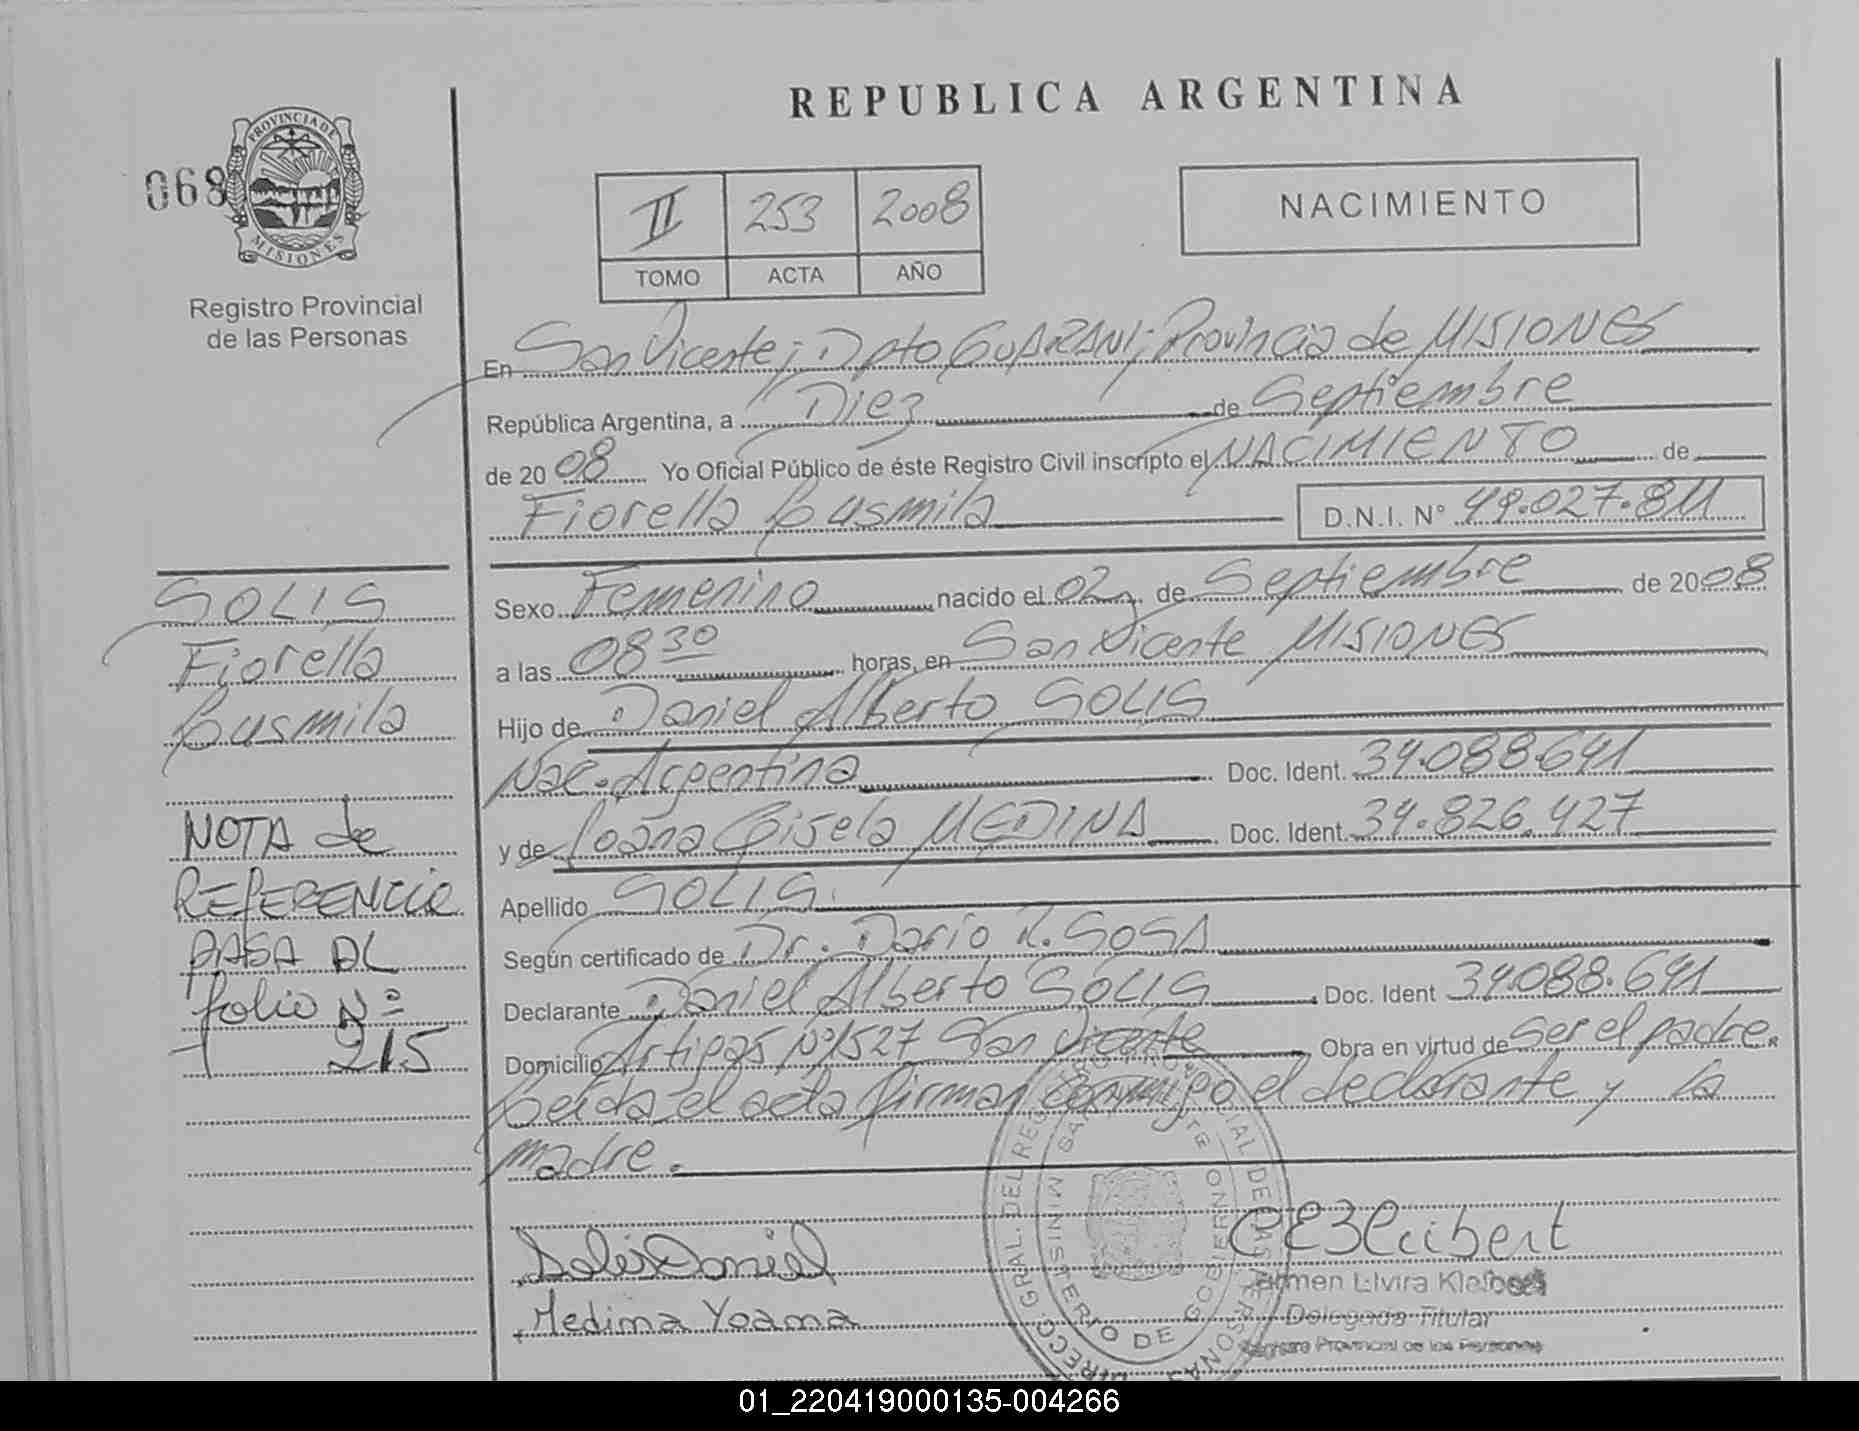 REPUBLICA ARGENTINA
068
PROVINCIA DE
MISIONES
Registro Provincial
de las Personas
II 253 2008
TOMO ACTA AÑO
NACIMIENTO
En San Vicente; Dpto GUARANI; Provincia de MISIONES
República Argentina, a Diez de Septiembre
de 2008 Yo Oficial Público de éste Registro Civil inscripto el NACIMIENTO de
Fiorella Lusmila D.N.I. N° 49.027.811
Sexo Femenino nacido el 02 de Septiembre de 2008
a las 08 30 horas, en San Vicente MISIONES
Hijo de Daniel Alberto SOLIS
Nac. Argentina Doc. Ident. 34.088.641
y de Ioana Gisela MEDINA Doc. Ident. 34.826.427
Apellido SOLIS.
Según certificado de Dr. Dario R. SOSA
Declarante Daniel Alberto SOLIS Doc. Ident 34.088.641
Domicilio Artigas Nº 1527 San Vicente Obra en virtud de Ser el padre.
Leida el acta firman conmigo el declarante y la
madre.
SOLIS
Fiorella
Lusmila
NOTA de
REFERENCIA
PASA AL
folio Nº
215
Solis Daniel
Medina Yoana
CE3Cleibert
Carmen Elvira
Delegada Titular
Registro Provincial de las Personas
MINISTERIO DE GOBIERNO
01_220419000135-004266